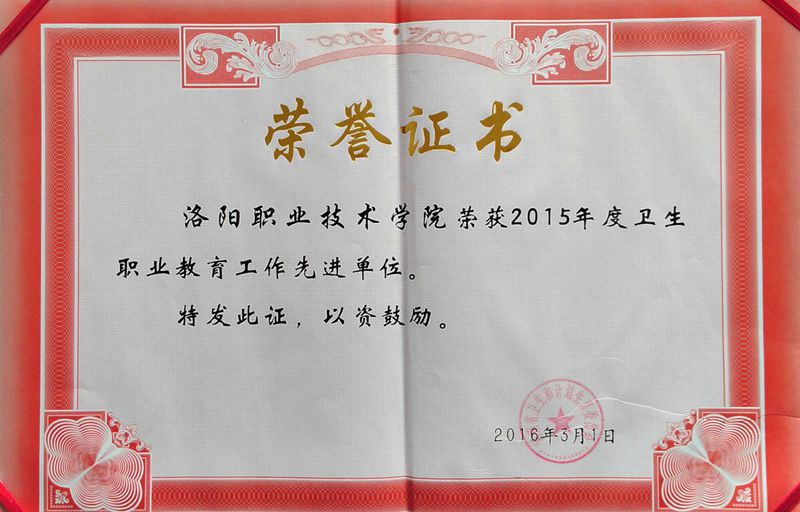 荣誉证书
洛阳职业技术学院荣获2015年度卫生
职业教育工作先进单位。
特发此证，以资鼓励。
省卫生和计划生育委员会
2016年3月1日